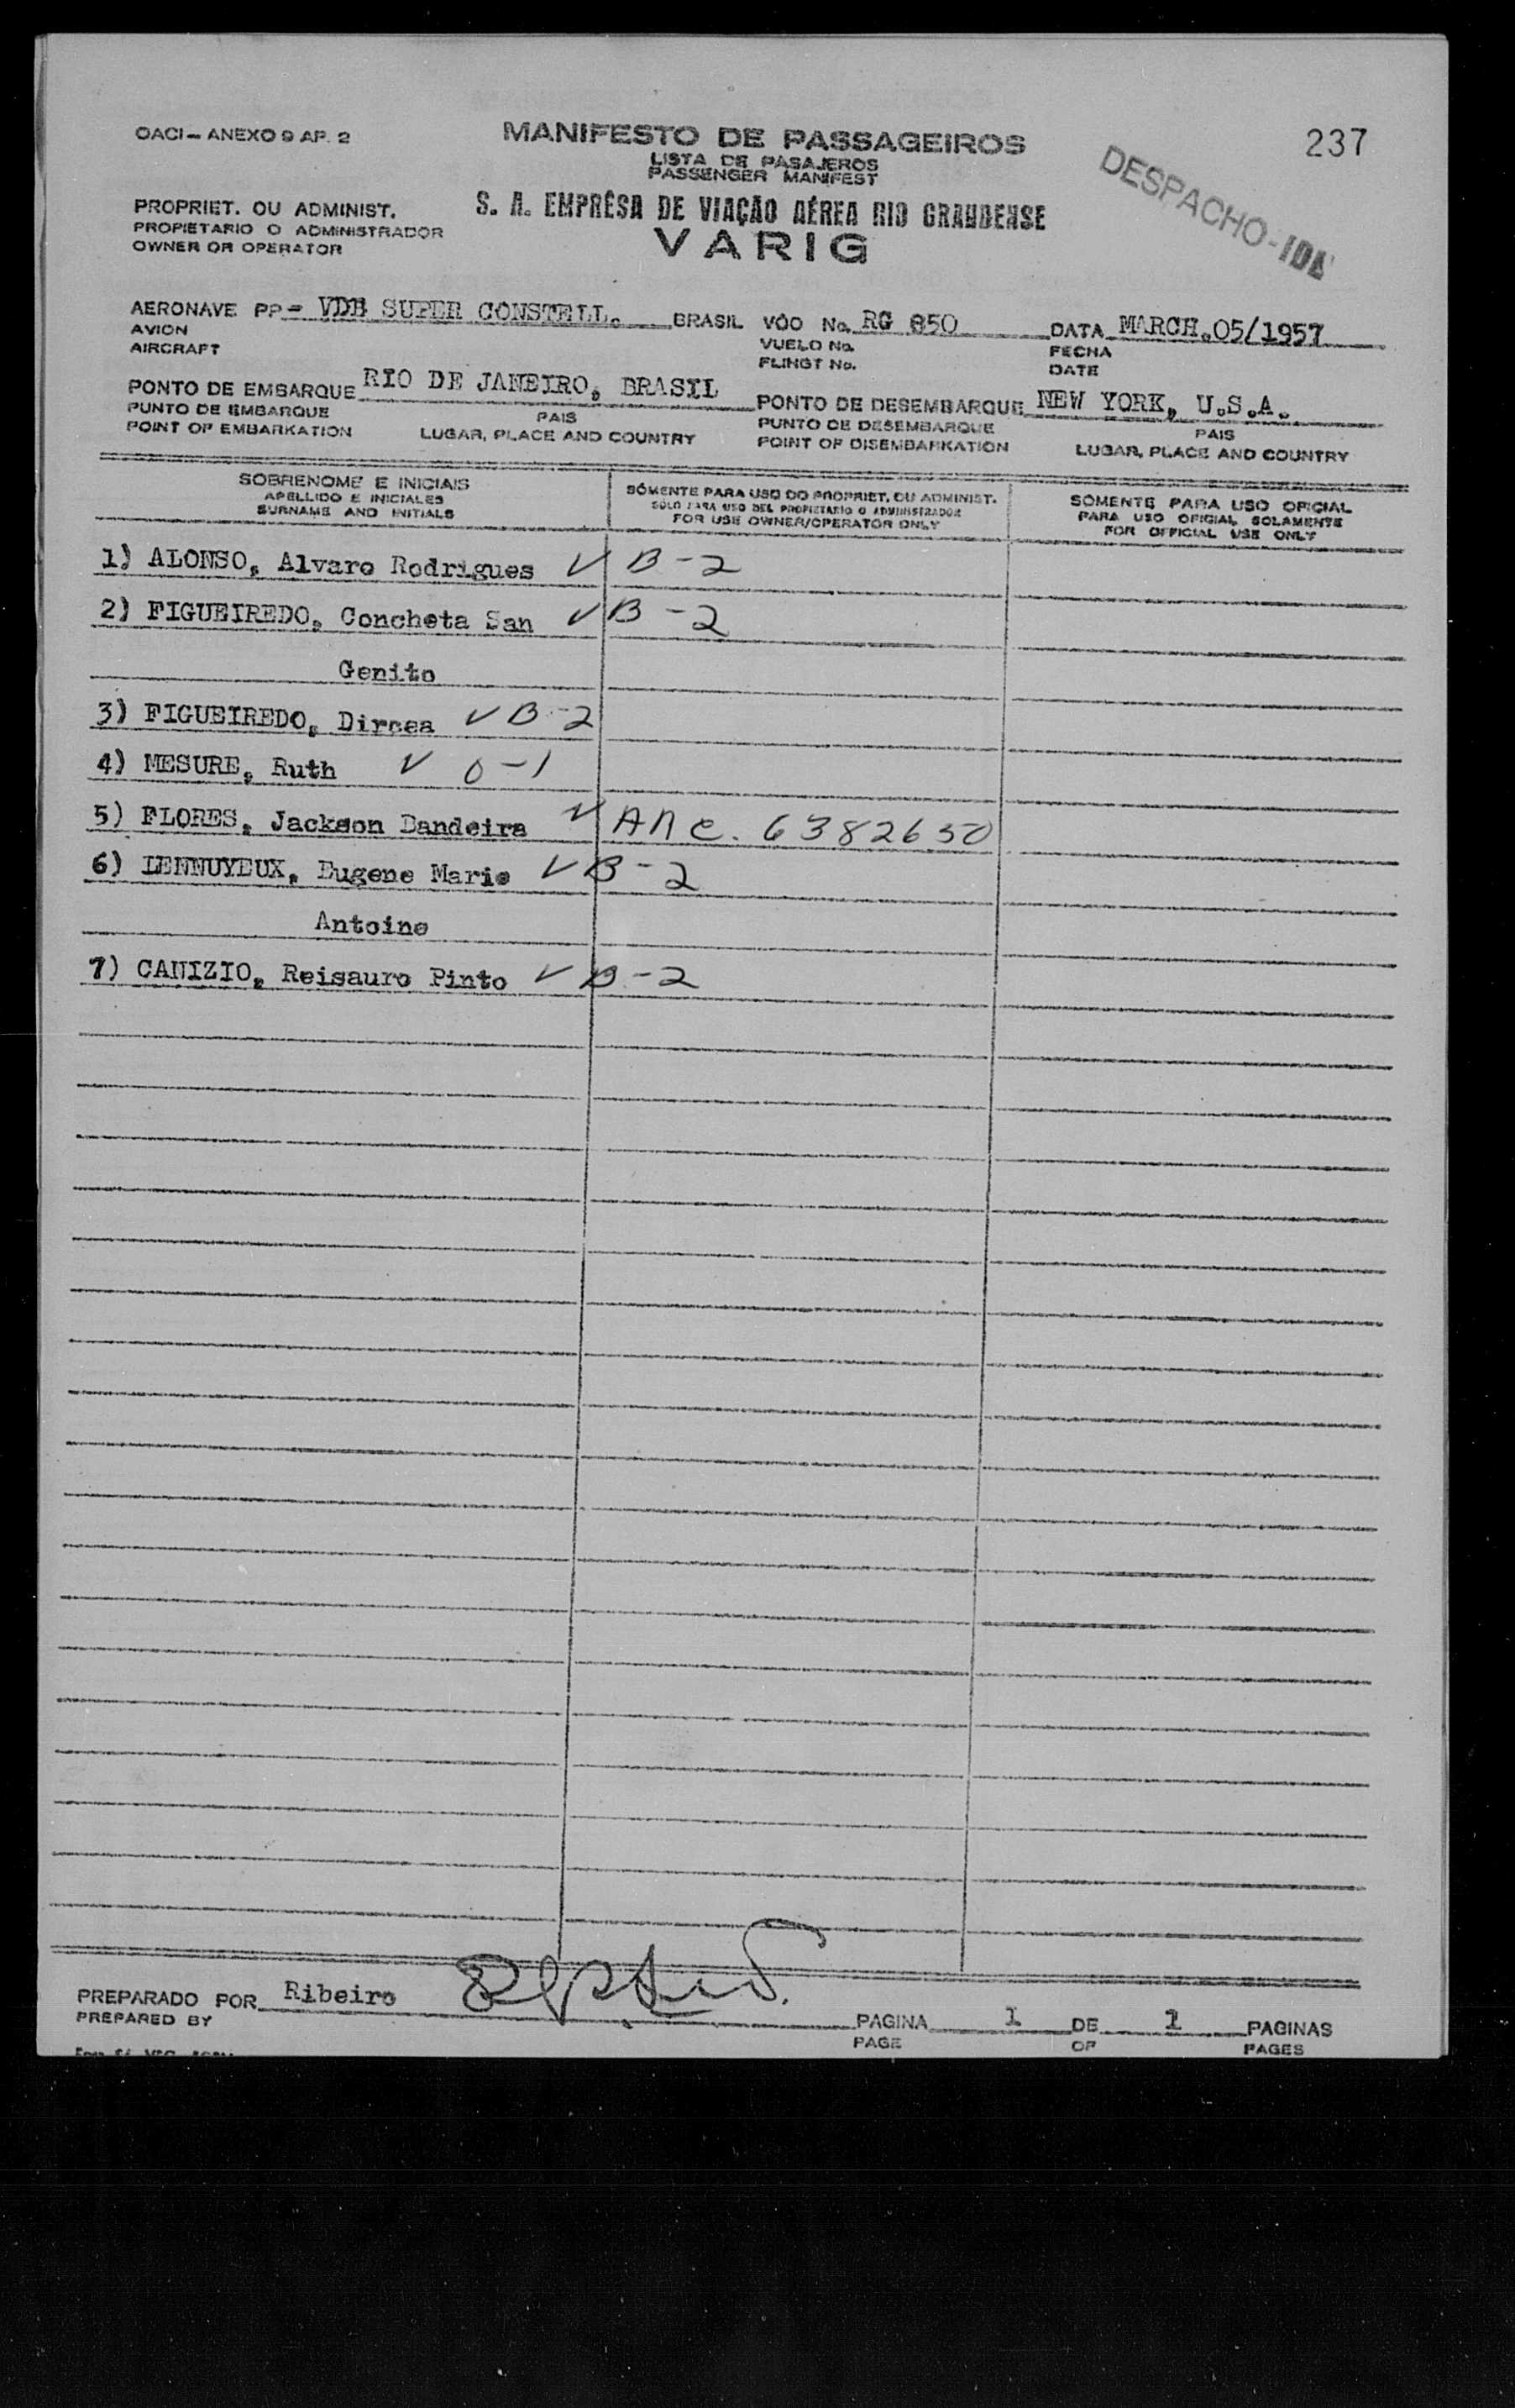 OACI — ANEXO 9 AP. 2
MANIFESTO DE PASSAGEIROS
237
LISTA DE PASAJEROS
PASSENGER MANIFEST
DESPACHO-IDA
PROPRIET. OU ADMINIST.
PROPIETARIO O ADMINISTRADOR
OWNER OR OPERATOR
S. A. EMPRÊSA DE VIAÇÃO AÉREA RIO GRANDENSE
VARIG
AERONAVE PP- VDB SUPER CONSTELL. BRASIL VÔO No. RG 850 DATA MARCH.05/1957
AVION VUELO No. FECHA
AIRCRAFT FLINGT No. DATE
PONTO DE EMBARQUE RIO DE JANEIRO, BRASIL PONTO DE DESEMBARQUE NEW YORK, U.S.A.
PUNTO DE EMBARQUE PAIS PUNTO DE DESEMBARQUE PAIS
POINT OF EMBARKATION LUGAR, PLACE AND COUNTRY POINT OF DISEMBARKATION LUGAR, PLACE AND COUNTRY
SOBRENOME E INICIAIS
APELLIDO E INICIALES
SURNAME AND INITIALS
SÓMENTE PARA USO DO PROPRIET. OU ADMINIST.
SOLO PARA USO DEL PROPIETARIO O ADMINISTRADOR
FOR USE OWNER/OPERATOR ONLY
SOMENTE PARA USO OFICIAL
PARA USO OFICIAL SOLAMENTE
FOR OFFICIAL USE ONLY
1) ALONSO, Alvaro Rodrigues ✓ B-2
2) FIGUEIREDO, Concheta San ✓ B-2
Genito
3) FIGUEIREDO, Dircea ✓ B-2
4) MESURE, Ruth ✓ 0-1
5) FLORES, Jackson Bandeira ✓ ANC. 6382650
6) LENNUYEUX, Eugene Marie ✓ B-2
Antoine
7) CANIZIO, Reisauro Pinto ✓ B-2
PREPARADO POR Ribeiro
PREPARED BY
PAGINA 1 DE 1 PAGINAS
PAGE OF PAGES